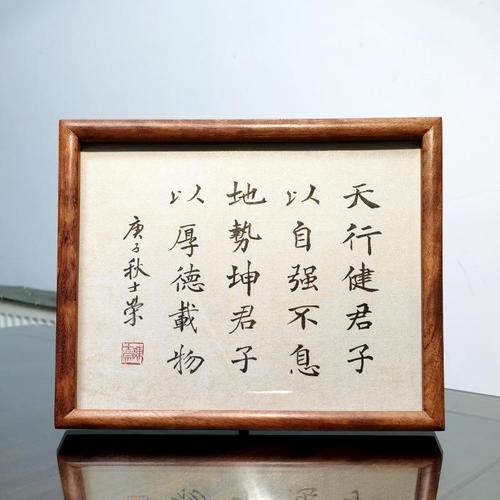 天行健君子
以自强不息
地勢坤君子
以厚德載物
庚子秋士榮